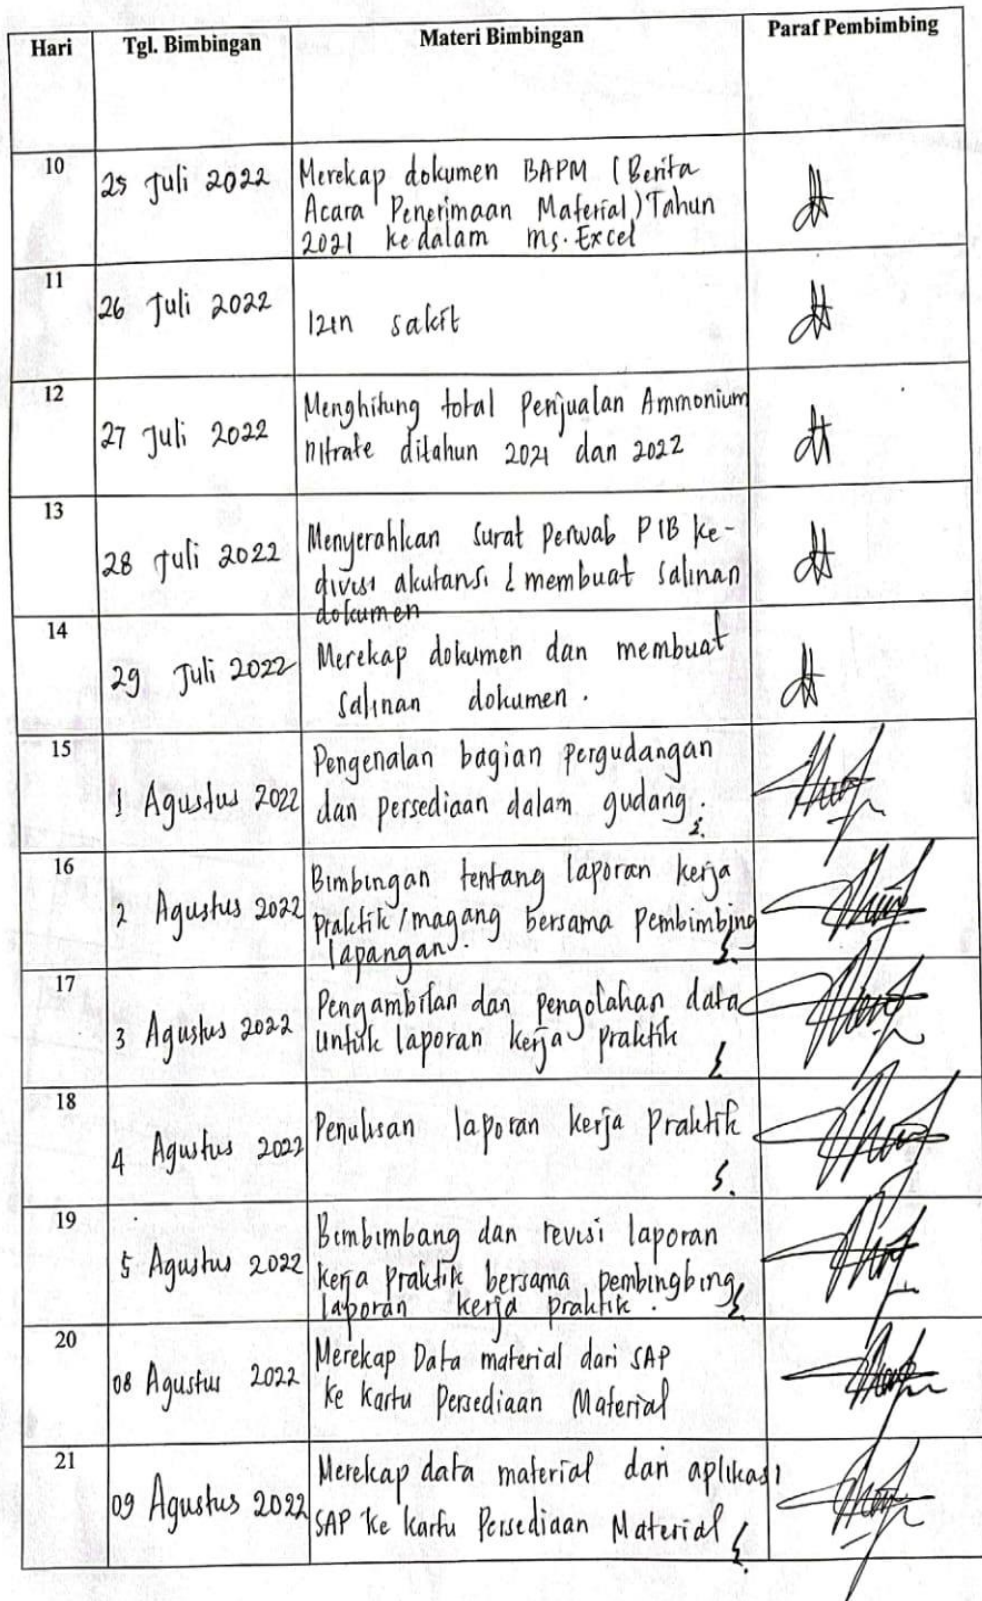 Hari Tgl. Bimbingan Materi Bimbingan Paraf Pembimbing
10
25 Juli 2022
Merekap dokumen BAPM (Berita
Acara Penerimaan Material) Tahun
2021 kedalam ms. Excel
11
26 Juli 2022
Izin sakit
12
27 Juli 2022
Menghitung total Penjualan Ammonium
nitrate ditahun 2021 dan 2022
13
28 Juli 2022
Menyerahkan surat Perwab PIB ke-
divisi akutansi & membuat salinan
dokumen
14
29 Juli 2022
Merekap dokumen dan membuat
salinan dokumen.
15
1 Agustus 2022
Pengenalan bagian pergudangan
dan persediaan dalam gudang.
16
2 Agustus 2022
Bimbingan tentang laporan kerja
Praktik/magang bersama Pembimbing
lapangan.
17
3 Agustus 2022
Pengambilan dan pengolahan data
untuk laporan kerja praktik
18
4 Agustus 2022
Penulisan laporan kerja Praktik
19
5 Agustus 2022
Bimbimbang dan revisi laporan
kerja praktik bersama pembingbing
laporan kerja praktik.
20
08 Agustus 2022
Merekap Data material dari SAP
ke kartu Persediaan Material
21
09 Agustus 2022
Merekap data material dari aplikasi
SAP ke kartu Persediaan Material